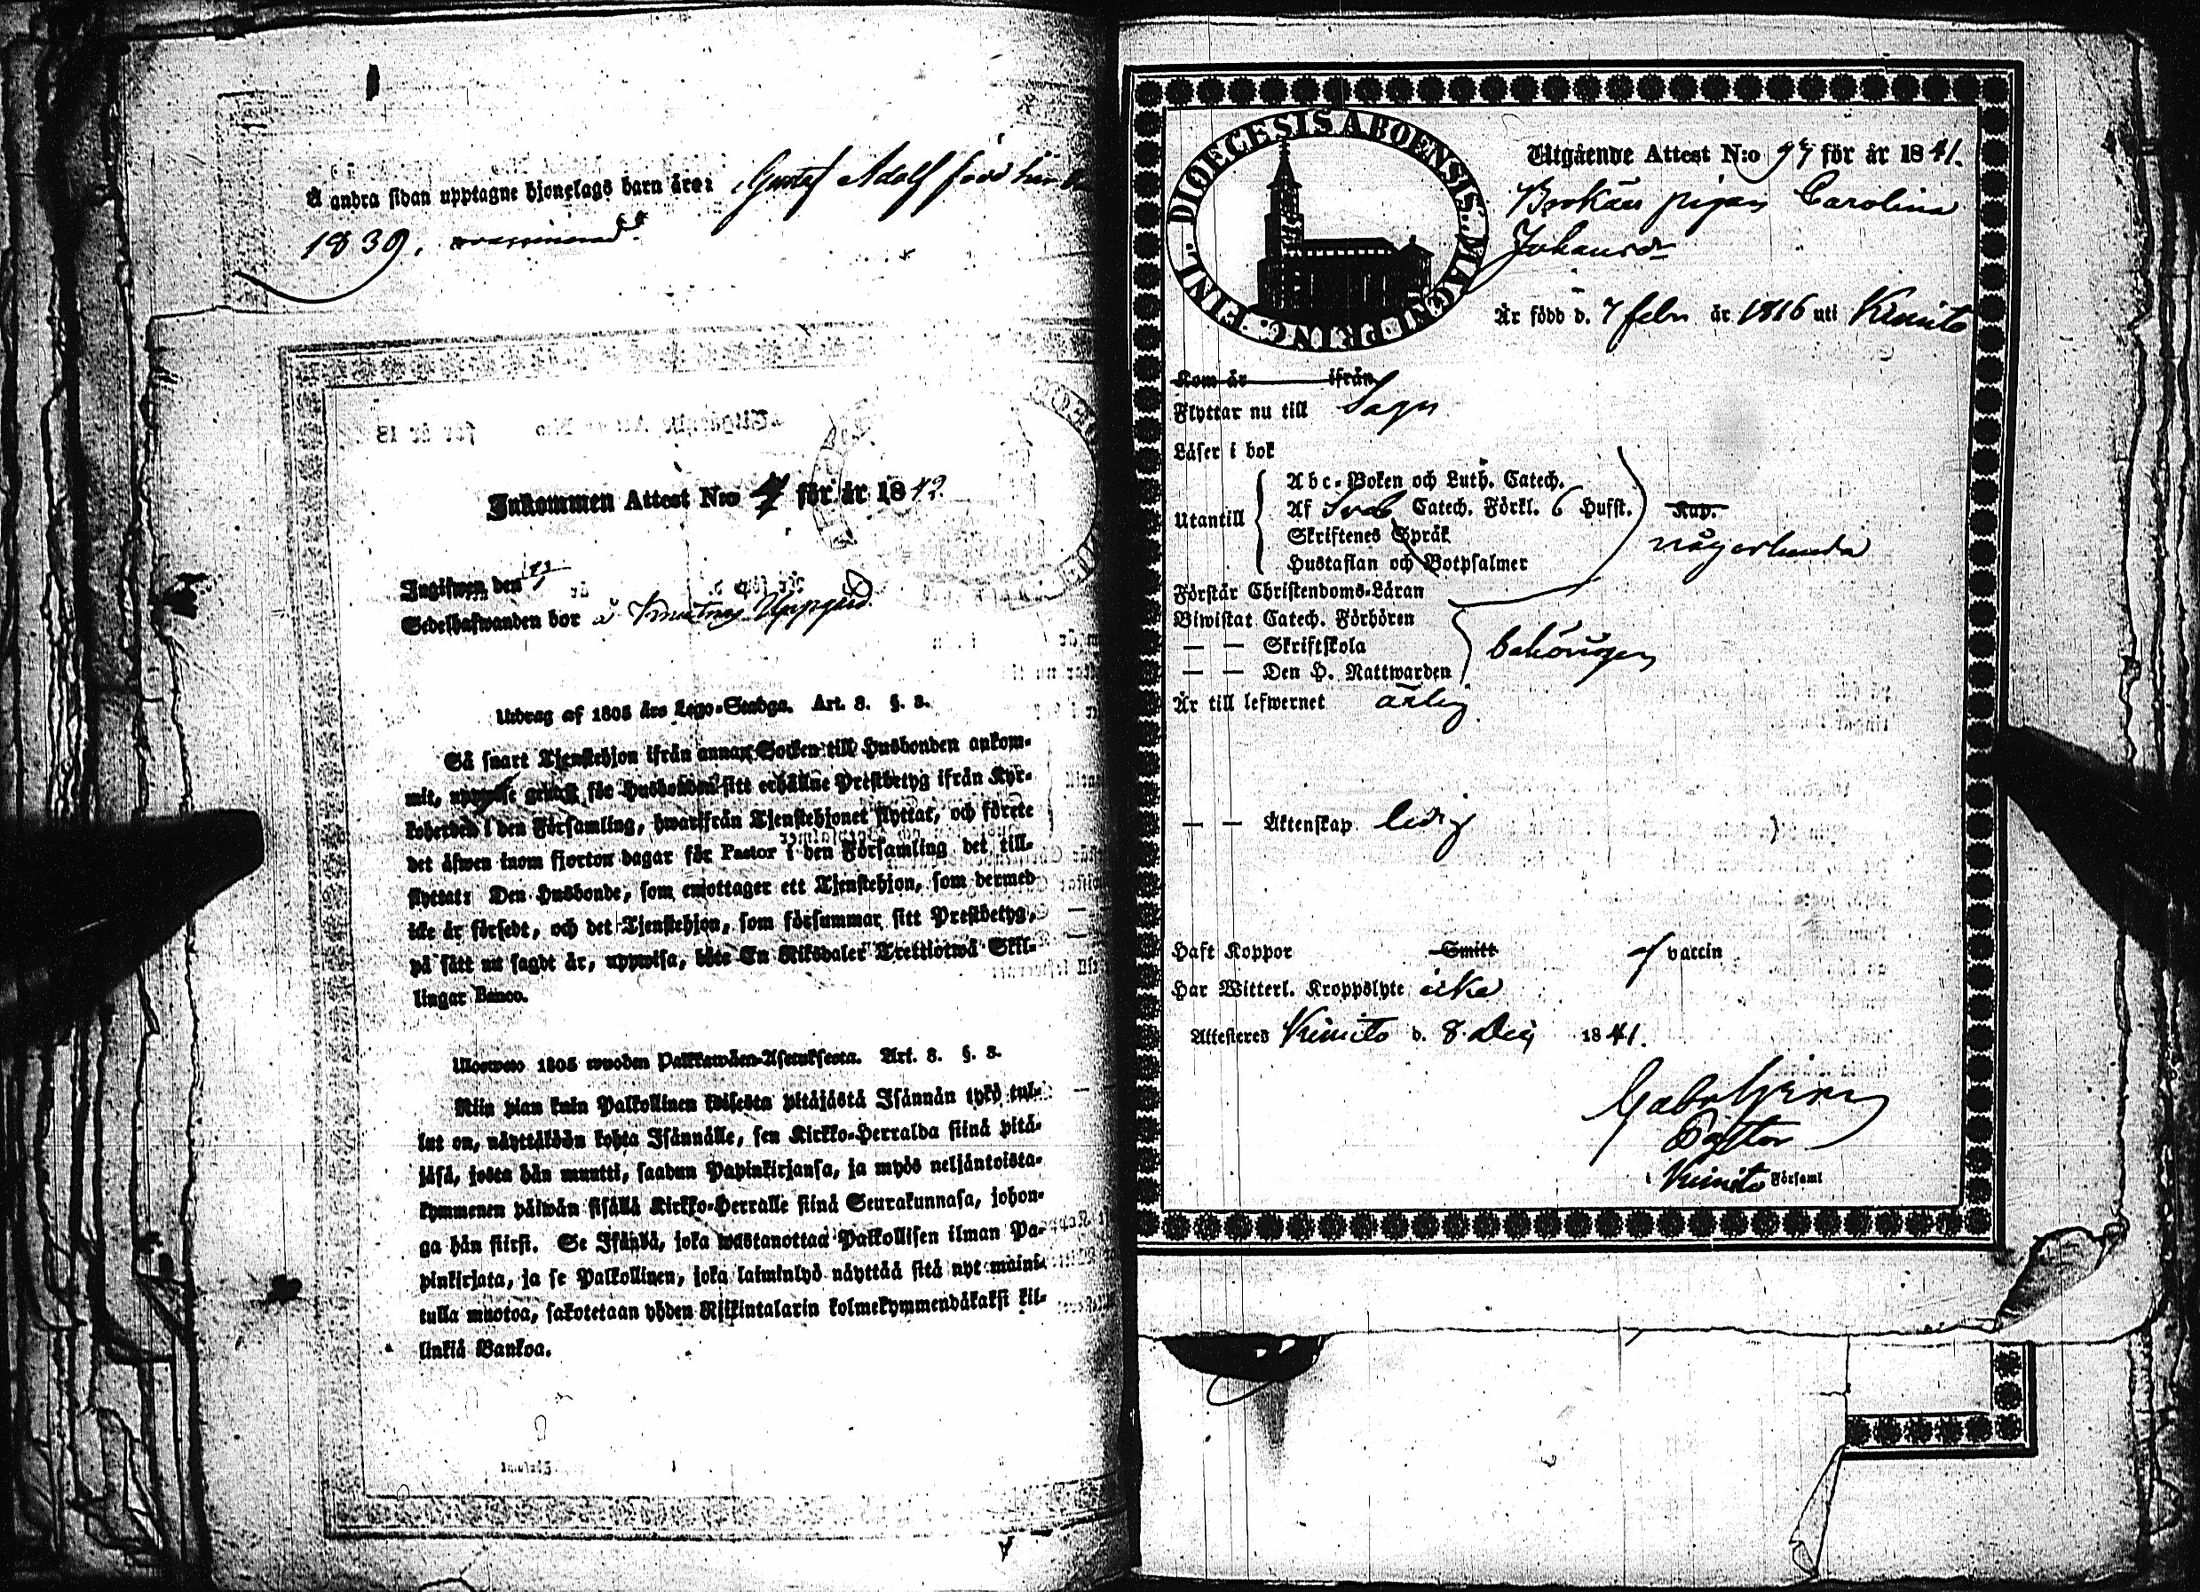 Å andra sidan upptagne hjonelags barn äro: Gustaf Adolf född
1839, vaccinerad.
Inkommen Attest N:o 7 för år 1842.
Ingifwen den
Sedelhafwanden bor å Uppgård.
Utdrag af 1805 års Lego-Stadga. Art. 8. §. 3.
Så snart Tjenstehjon ifrån annan Socken till Husbonden ankom-
mit, uppwise genast för Husbonden sitt erhållne Prestbetyg ifrån Kyr-
koherden i den Församling, hwarifrån Tjenstehjonet flyttat, och förete
det äfwen inom fjorton dagar för Pastor i den Församling det till-
flyttat: Den Husbonde, som emottager ett Tjenstehjon, som dermed
icke är försedt, och det Tjenstehjon, som försummar sitt Prestbetyg,
på sätt nu sagdt är, uppwisa, böte En Riksdaler Trettiotwå Skil-
lingar Banco.
Ulosweto 1805 wuoden Palkkawäen-Asetuksesta. Art. 8. §. 3.
Niin pian kuin Palkollinen toisesta pitäjästä Isännän tykö tul-
lut on, näyttäköön kohta Isännälle, sen Kirkko-Herralda siinä pitä-
jäsä, josta hän muutti, saadun Papinkirjansa, ja myös neljäntoista-
kymmenen päiwän sisällä Kirkko-Herralle siinä Seurakunnasa, johon-
ga hän siirsi. Se Isändä, joka wastanottaa Palkollisen ilman Pa-
pinkirjata, ja se Palkollinen, joka laiminlyö näyttää sitä nyt maini-
tulla muotoa, sakotetaan yhden Riikintalarin kolmekymmendäkaksi kil-
linkiä Bankoa.
FINL. DIOECESIS ABOENSIS. MAGN. PRINC.
Utgående Attest N:o 94 för år 1841.
pigan Carolina
Johansdr
Är född d. 7 febr år 1816 uti Kimito
Kom år ifrån
Flyttar nu till Sagu
Läser i bok
Utantill
Abc-Boken och Luth. Catech.
Af Sveb Catech. Förkl. 6 Hufst. Kap.
Skriftenes Språk
Hustaflan och Botpsalmer
någorlunda
Förstår Christendoms-Läran
Biwistat Catech. Förhören
— — Skriftskola
— — Den H. Nattwarden
behörigen
Är till lefwernet ärlig
— — Äktenskap ledig
Haft Koppor Smitt af vaccin
Har Witterl. Kroppslyte icke
Attesteres Kimito d. 8 Dec 1841.
Pastor
i Kimito Församl